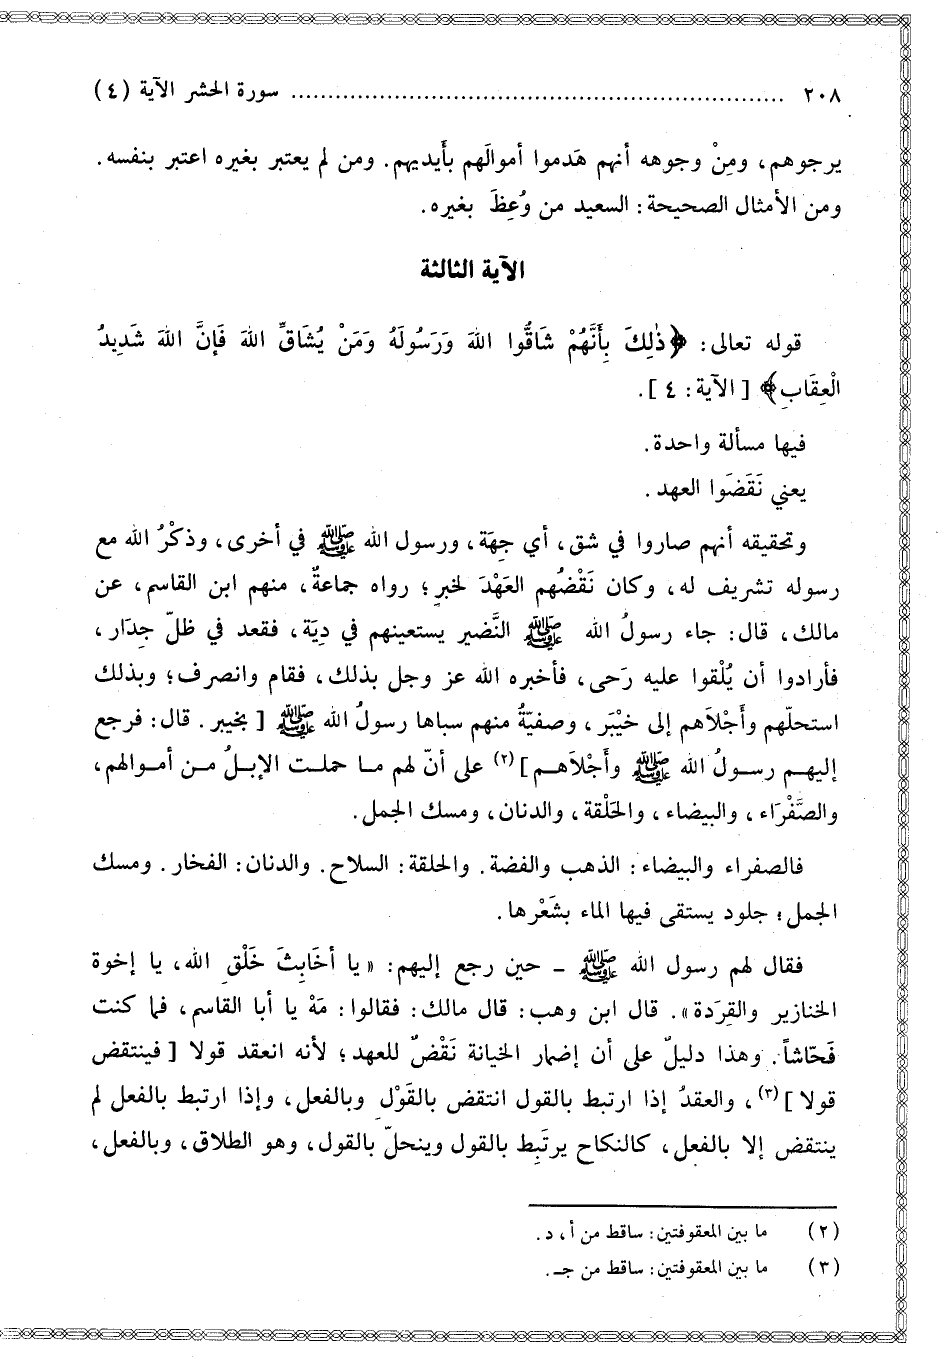 ٢٠٨ ................................................................ سورة الحشر الآية (٤)
يرجوهم، ومِنْ وجوهه أنهم هَدموا أموالَهم بأَيديهم. ومن لم يعتبر بغيره اعتبر بنفسه.
ومن الأمثال الصحيحة: السعيد من وُعِظَ بغيره.
الآية الثالثة
قوله تعالى: ﴿ذٰلِكَ بِأَنَّهُمْ شَاقُّوا اللهَ وَرَسُولَهُ وَمَنْ يُشَاقِّ اللهَ فَإِنَّ اللهَ شَدِيدُ
الْعِقَابِ﴾ [الآية: ٤].
فيها مسألة واحدة.
يعني نَقَضَوا العهد.
وتحقيقه أنهم صاروا في شق، أي جِهَة، ورسول الله ﷺ في أخرى، وذكْرُ الله مع
رسوله تشريف له، وكان نَقْضُهم العَهْدَ لخبرٍ؛ رواه جماعةٌ، منهم ابن القاسم، عن
مالك، قال: جاء رسولُ الله ﷺ النَّضير يستعينهم في دِيَة، فقعد في ظلّ جِدَار،
فأرادوا أن يُلْقوا عليه رَحى، فأخبره الله عز وجل بذلك، فقام وانصرف؛ وبذلك
استحلّهم وأَجْلَاهم إلى خيْبَر، وصفيّةُ منهم سباها رسولُ الله ﷺ [بخيبر. قال: فرجع
إليهم رسولُ الله ﷺ وأَجْلَاهم](٢) على أنّ لهم ما حملت الإبلُ من أموالهم،
والصَّفْرَاء، والبيضاء، والحَلْقة، والدنان، ومسك الجمل.
فالصفراء والبيضاء: الذهب والفضة. والحلقة: السلاح. والدنان: الفخار. ومسك
الجمل؛ جلود يستقى فيها الماء بشَعْرها.
فقال لهم رسول الله ﷺ - حين رجع إليهم: «يا أخَابِثَ خَلْقِ الله، يا إخوة
الخنازير والقِرَدة». قال ابن وهب: قال مالك: فقالوا: مَهْ يا أبا القاسم، فما كنت
فَحّاشاً. وهذا دليلٌ على أن إضمار الخيانة نَقْضٌ للعهد؛ لأنه انعقد قولا [فينتقض
قولا](٣)، والعقدُ إذا ارتبط بالقول انتقض بالقَوْلِ وبالفعل، وإذا ارتبط بالفعل لم
ينتقض إلا بالفعل، كالنكاح يرتَبِط بالقول وينحلّ بالقول، وهو الطلاق، وبالفعل،
(٢) ما بين المعقوفتين: ساقط من أ، د.
(٣) ما بين المعقوفتين: ساقط من جـ.